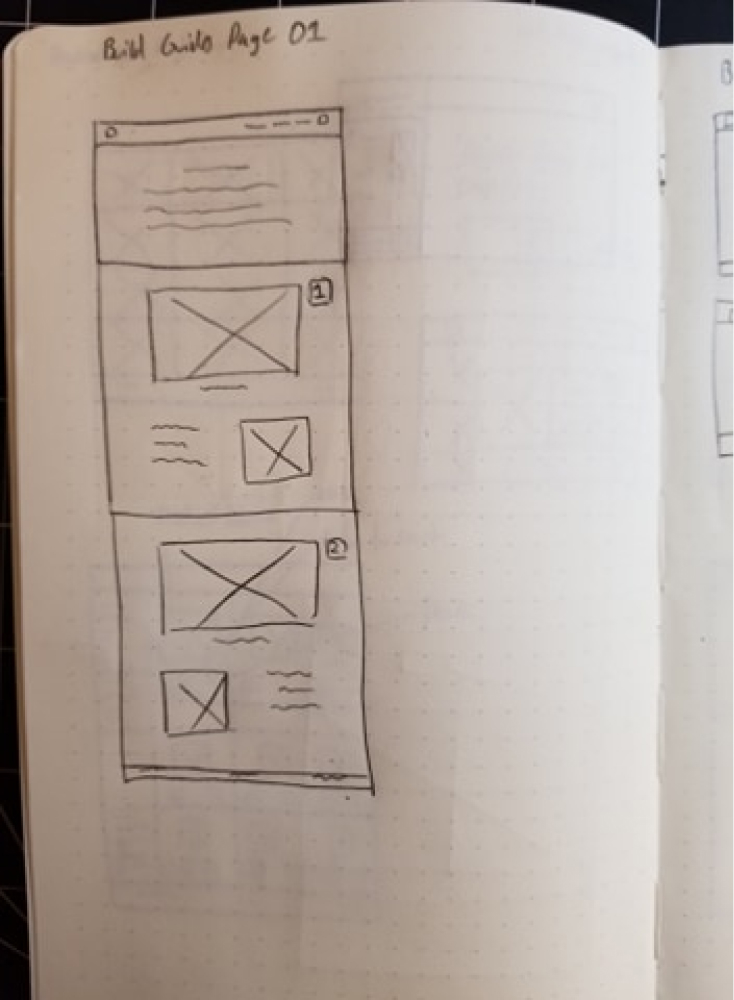 Build Guide Page 01
1
2